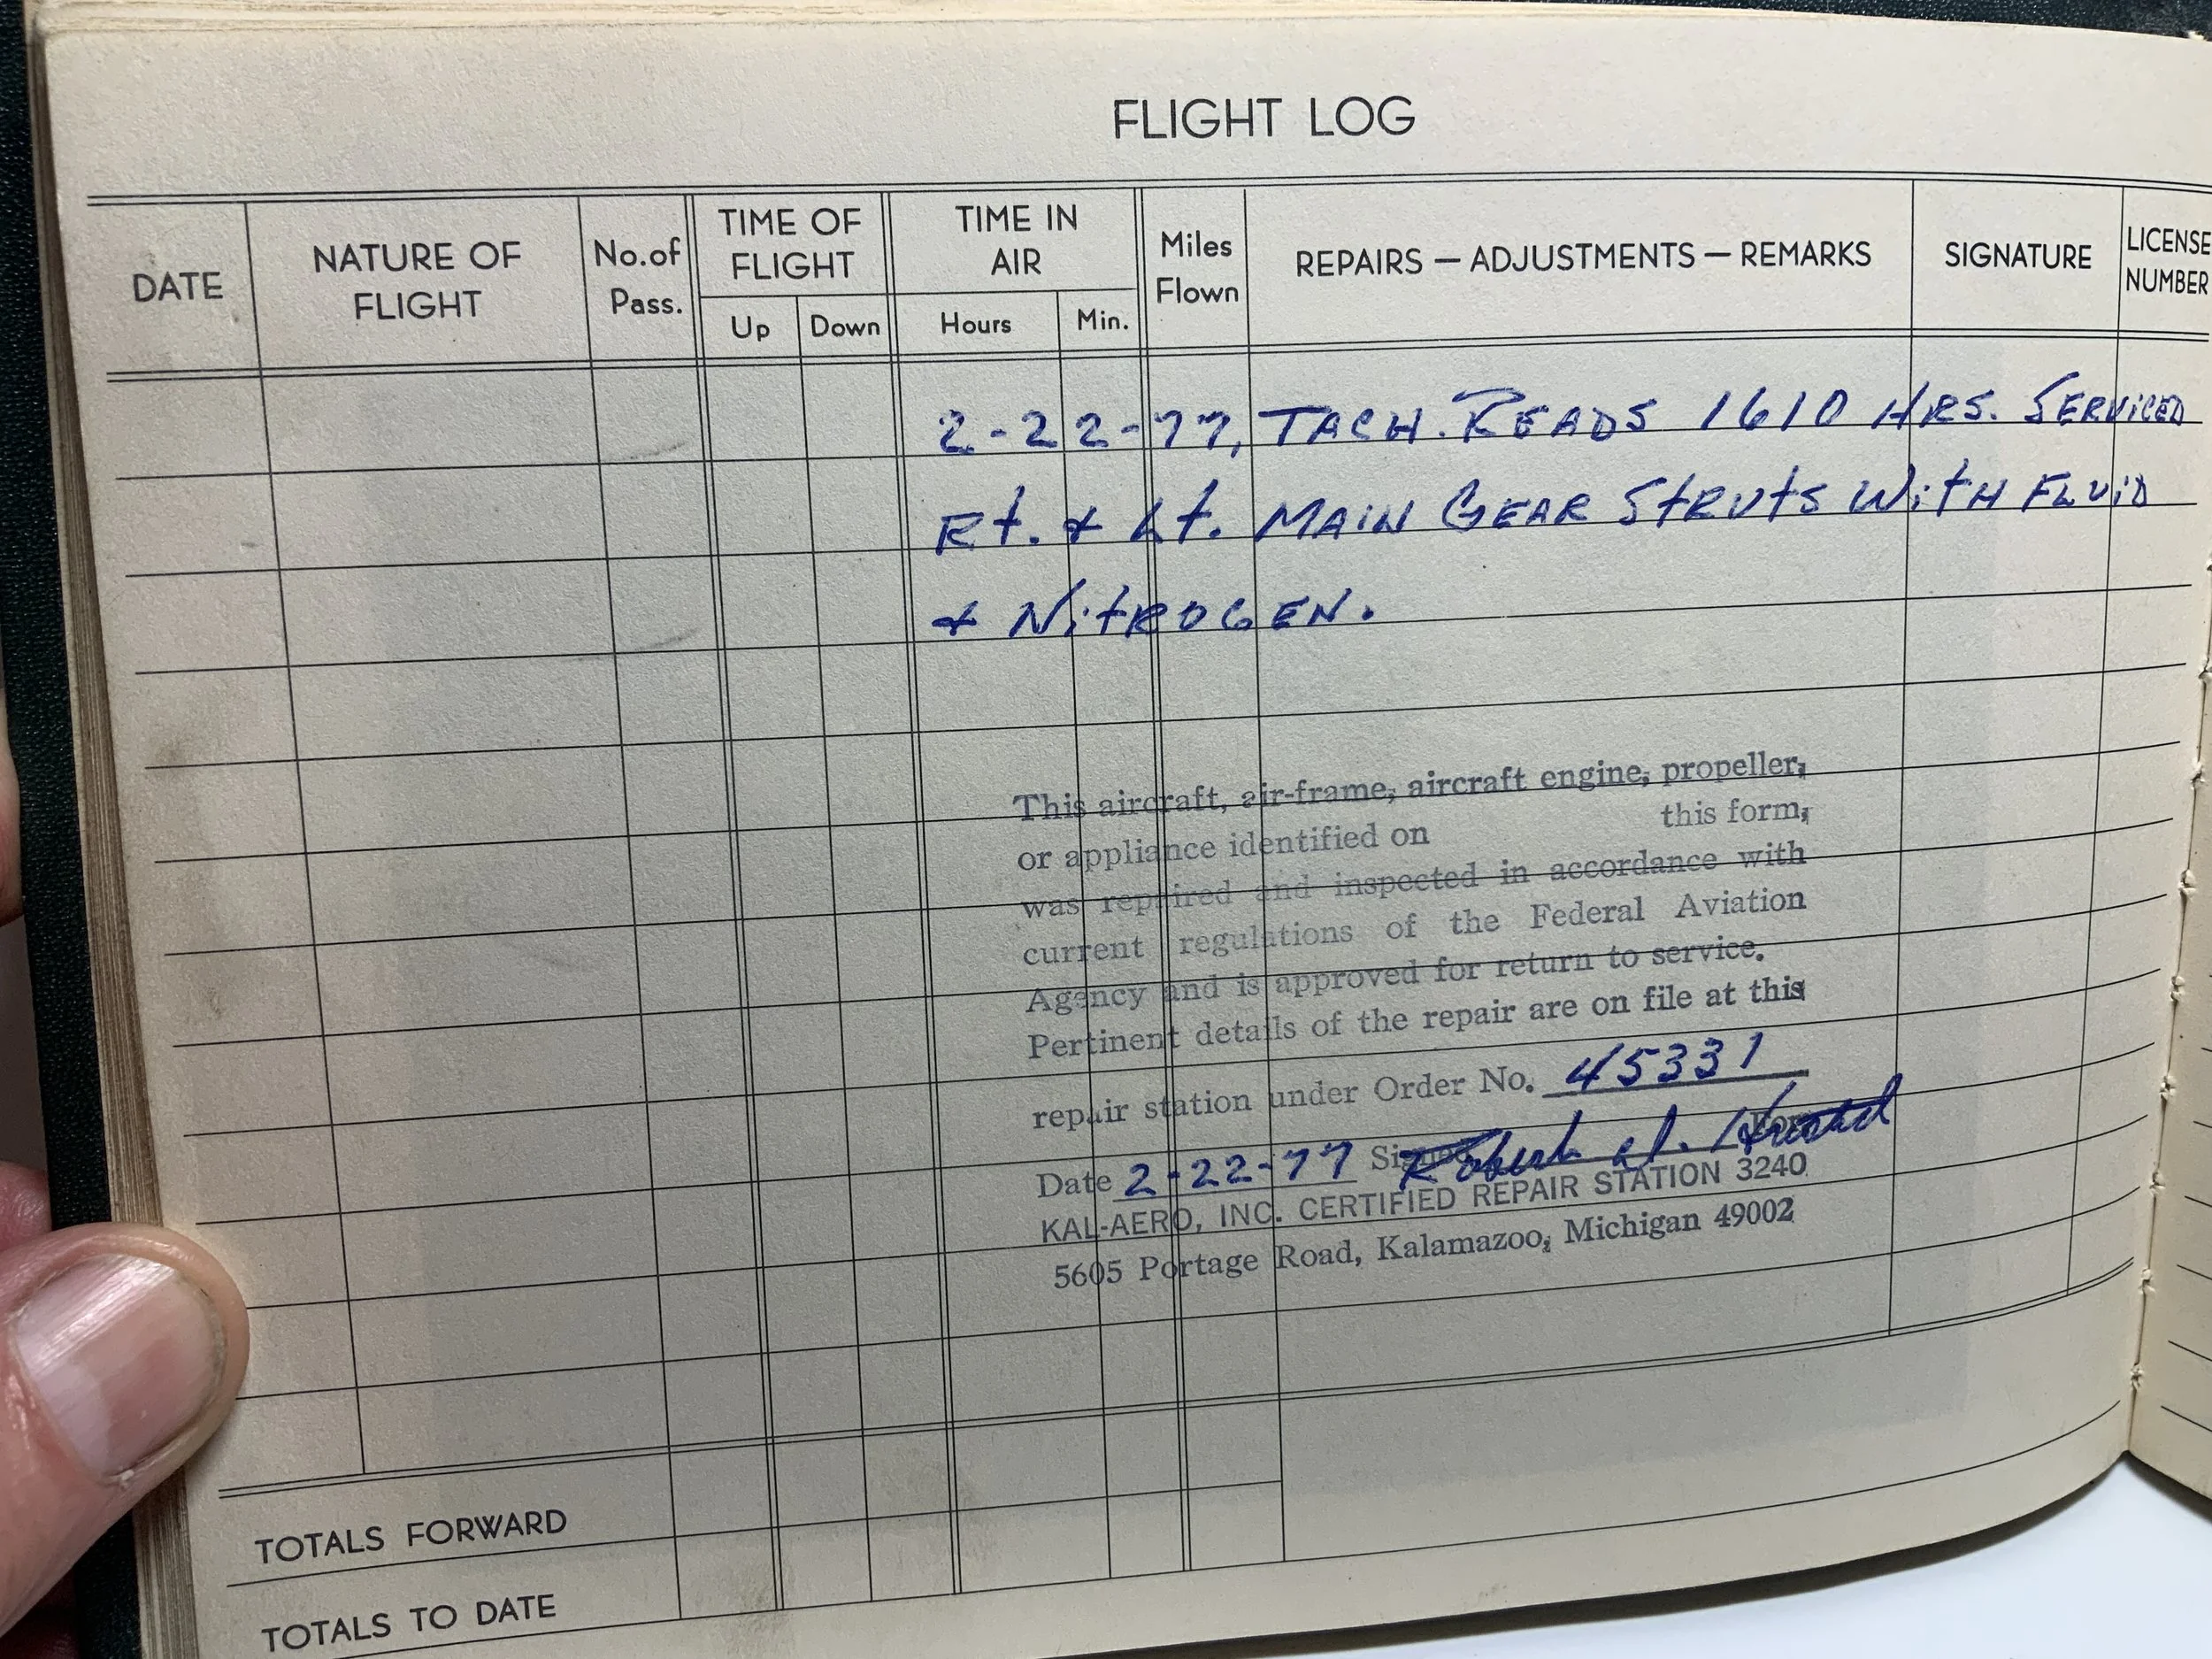 FLIGHT LOG
DATE
NATURE OF
FLIGHT
No.of
Pass.
TIME OF
FLIGHT
Up
Down
TIME IN
AIR
Hours
Min.
Miles
Flown
REPAIRS — ADJUSTMENTS — REMARKS
SIGNATURE
LICENSE
NUMBER
2-22-77, TACH. READS 1610 HRS. SERVICED
Rt. & Lt. MAIN GEAR StRUtS WitH FLUiD
& NitROGEN.
This aircraft, air-frame, aircraft engine, propeller,
or appliance identified on this form,
was repaired and inspected in accordance with
current regulations of the Federal Aviation
Agency and is approved for return to service.
Pertinent details of the repair are on file at this
repair station under Order No. 45331
Date 2-22-77 Signed Robert
KAL-AERO, INC. CERTIFIED REPAIR STATION 3240
5605 Portage Road, Kalamazoo, Michigan 49002
TOTALS FORWARD
TOTALS TO DATE